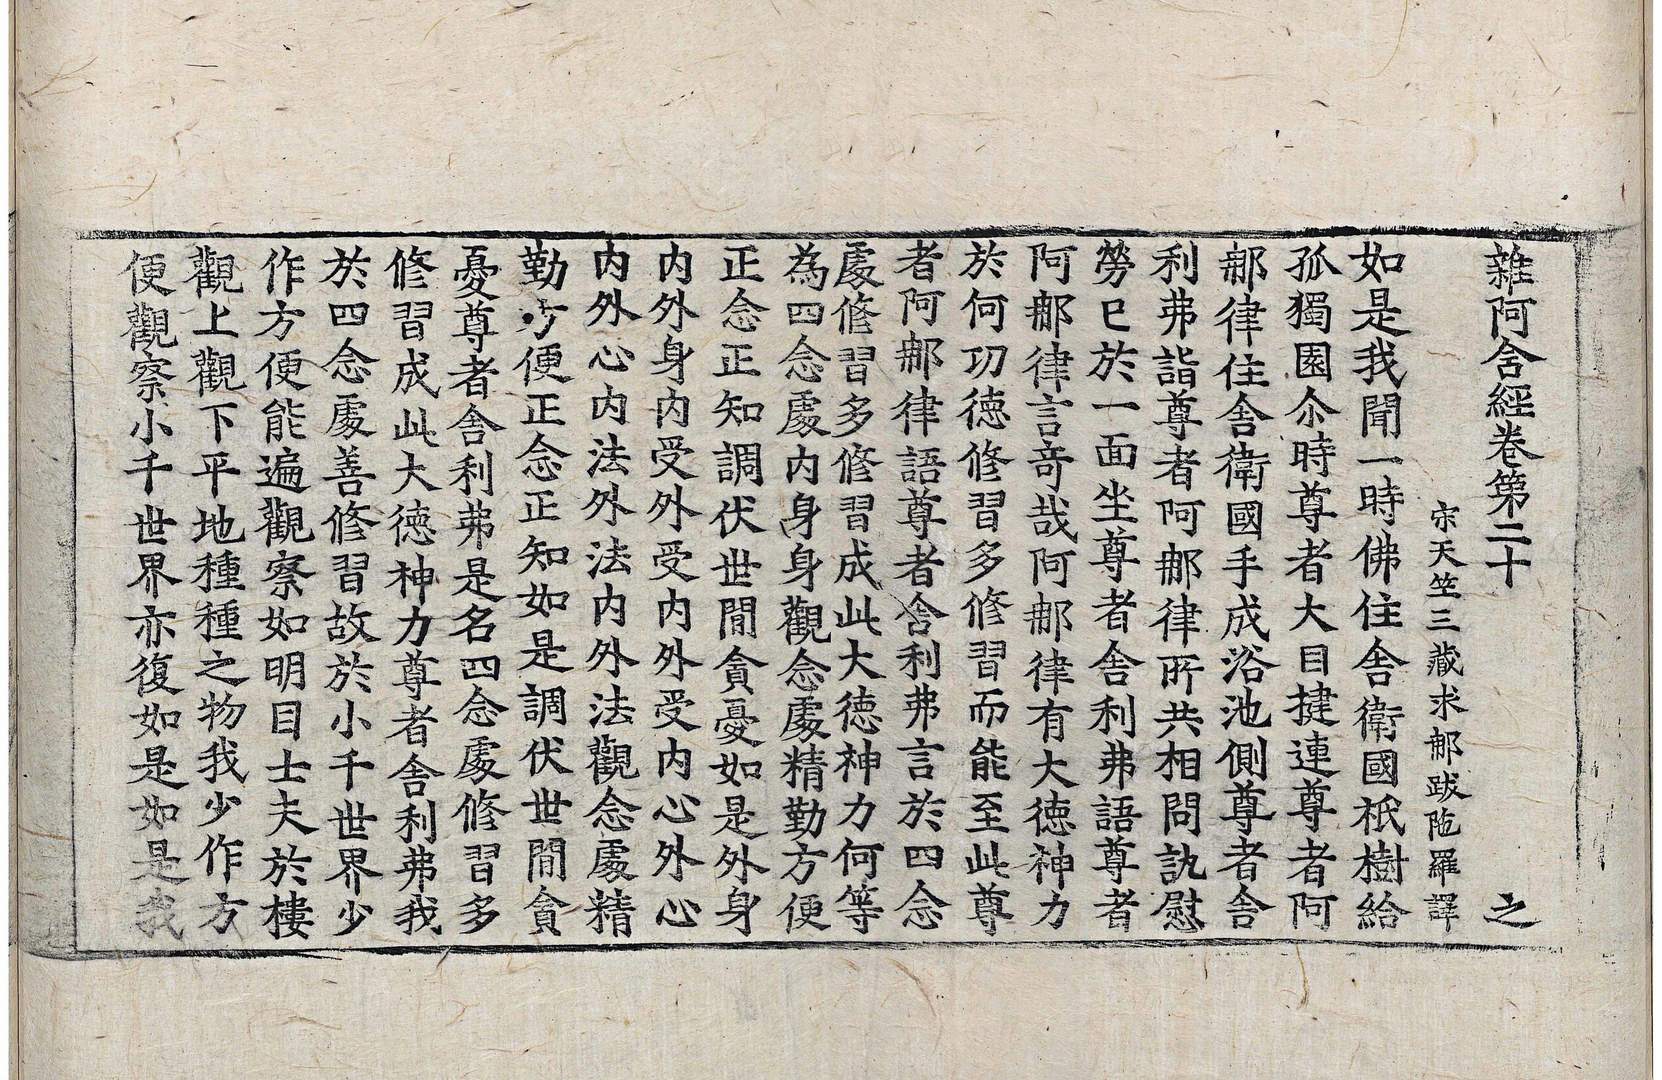 雜阿含經卷第二十　之
宋天竺三藏求𨚗跋陁羅譯
如是我聞一時佛住舍衛國祇樹給
孤獨園尒時尊者大目揵連尊者阿
𨚗律住舍衛國手成浴池側尊者舍
利弗詣尊者阿𨚗律所共相問訊慰
勞已於一面坐尊者舍利弗語尊者
阿𨚗律言奇哉阿𨚗律有大徳神力
於何功徳修習多修習而能至此尊
者阿𨚗律語尊者舍利弗言於四念
處修習多修習成此大徳神力何等
為四念處内身身觀念處精勤方便
正念正知調伏世間貪憂如是外身
内外身内受外受内外受内心外心
内外心内法外法内外法觀念處精
勤方便正念正知如是調伏世間貪
憂尊者舍利弗是名四念處修習多
修習成此大徳神力尊者舍利弗我
於四念處善修習故於小千世界少
作方便能遍觀察如明目士夫於樓
觀上觀下平地種種之物我少作方
便觀察小千世界亦復如是如是我